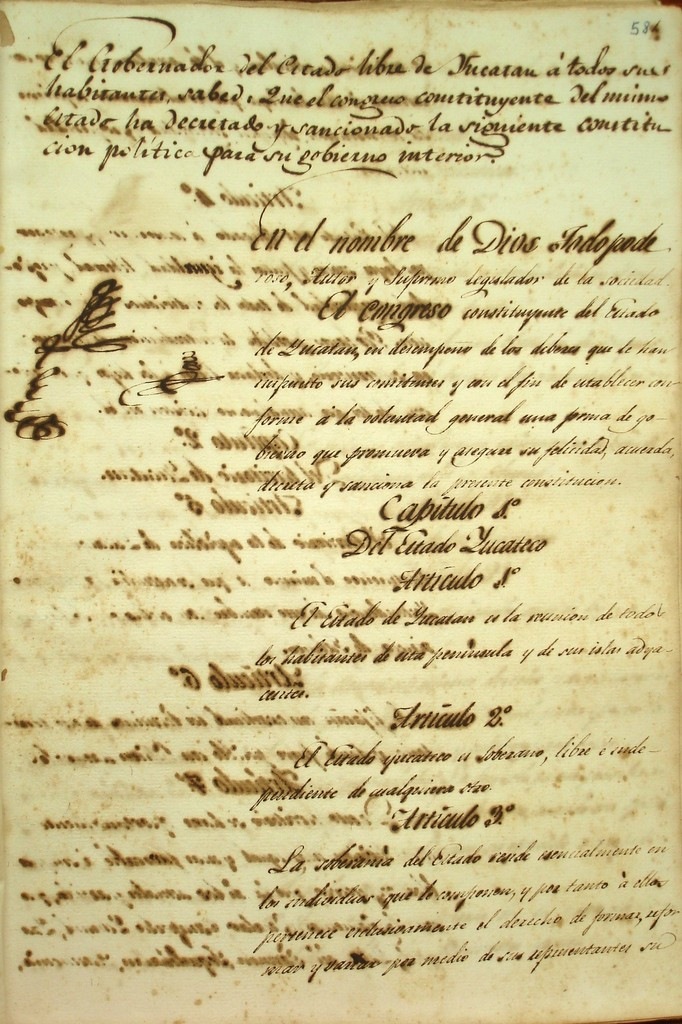 58
El Gobernador del Estado libre de Yucatan á todos sus
habitantes, sabed: Que el congreso constituyente del mismo
Estado ha decretado y sancionado la siguiente constitu
cion política para su gobierno interior.
En el nombre de Dios Todopode
roso, Autor y Supremo legislador de la sociedad.
El congreso constituyente del Estado
de Yucatan, en desempeno de los deberes que le han
impuesto sus comitentes y con el fin de establecer con
forme á la voluntad general una forma de go
bierno que promueva y asegure su felicidad, acuerda,
decreta y sanciona la presente constitucion.
Capítulo 1.º
Del Estado Yucateco
Artículo 1.º
El Estado de Yucatan es la reunion de todos
los habitantes de esta península y de sus islas adya
centes.
Artículo 2.º
El Estado yucateco es soberano, libre é inde-
pendiente de cualquiera otro.
Artículo 3.º
La soberanía del Estado reside esencialmente en
los individuos que le componen, y por tanto á ellos
pertenece esclusivamente el derecho de formar, refor
mar y variar por medio de sus representantes su